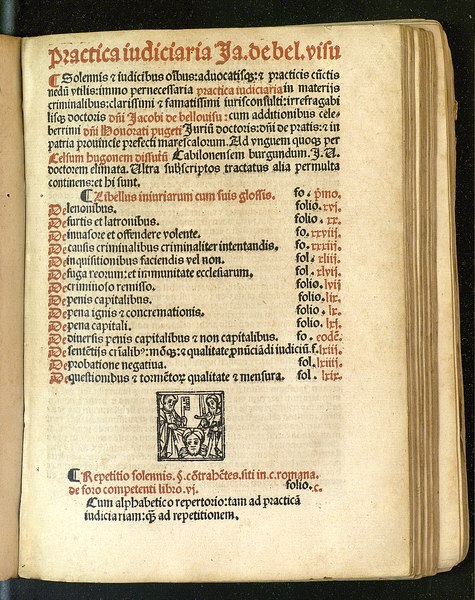 Practica iudiciaria Ja. de bel. visu
¶ Solennis ⁊ iudicibus oībus: aduocatisq̄: ⁊ practicis cūctis
nedū vtilis: immo pernecessaria practica iudiciaria in materijs
criminalibus: clarissimi ⁊ famatissimi iurisconsulti: irrefragabi
lisq̄ doctoris dn̄i Jacobi de bellouisu: cum additionibus cele-
berrimi dn̄i Honorati pugeti Juriū doctoris: dn̄i de pratis: ⁊ in
patria prouincie prefecti marescalorum. Ad vnguem quoq̄ per
Celsum hugonem dissutū Cabilonensem burgundum. J. U.
doctorem elimata. Ultra subscriptos tractatus alia permulta
continens: et hi sunt.
¶ Libellus iniuriarum cum suis glossis. fo. pmo.
De lenonibus. folio. xvj.
De furtis et latronibus. folio. xx.
De inuasore et offendere volente. fo. xxviij.
De causis criminalibus criminaliter intentandis. fo. xxxiij.
De inquisitionibus faciendis vel non. fol. xliij.
De fuga reorum: et immunitate ecclesiarum. fol. xlvij
De criminoso remisso. folio. lvij
De penis capitalibus. folio. lix.
De pena ignis ⁊ concremationis. fo. lx.
De pena capitali. folio. lxj.
De diuersis penis capitalibus ⁊ non capitalibus. fo. eodē.
De sentētijs cri᷑alib⁹: mōq̄: ⁊ qualitate ꝓnūciādi iudiciū. f. lxiij.
De probatione negatiua. fol. lxiiij.
De questionibus ⁊ tormētoꝝ qualitate ⁊ mensura. fol. lxix.
¶ Repetitio solennis. §. cōtrahētes. siti in. c. romana.
de foro competenti libro. vj. folio. c.
Cum alphabetico repertorio: tam ad practicā
iudiciariam: q̄ȝ ad repetitionem.